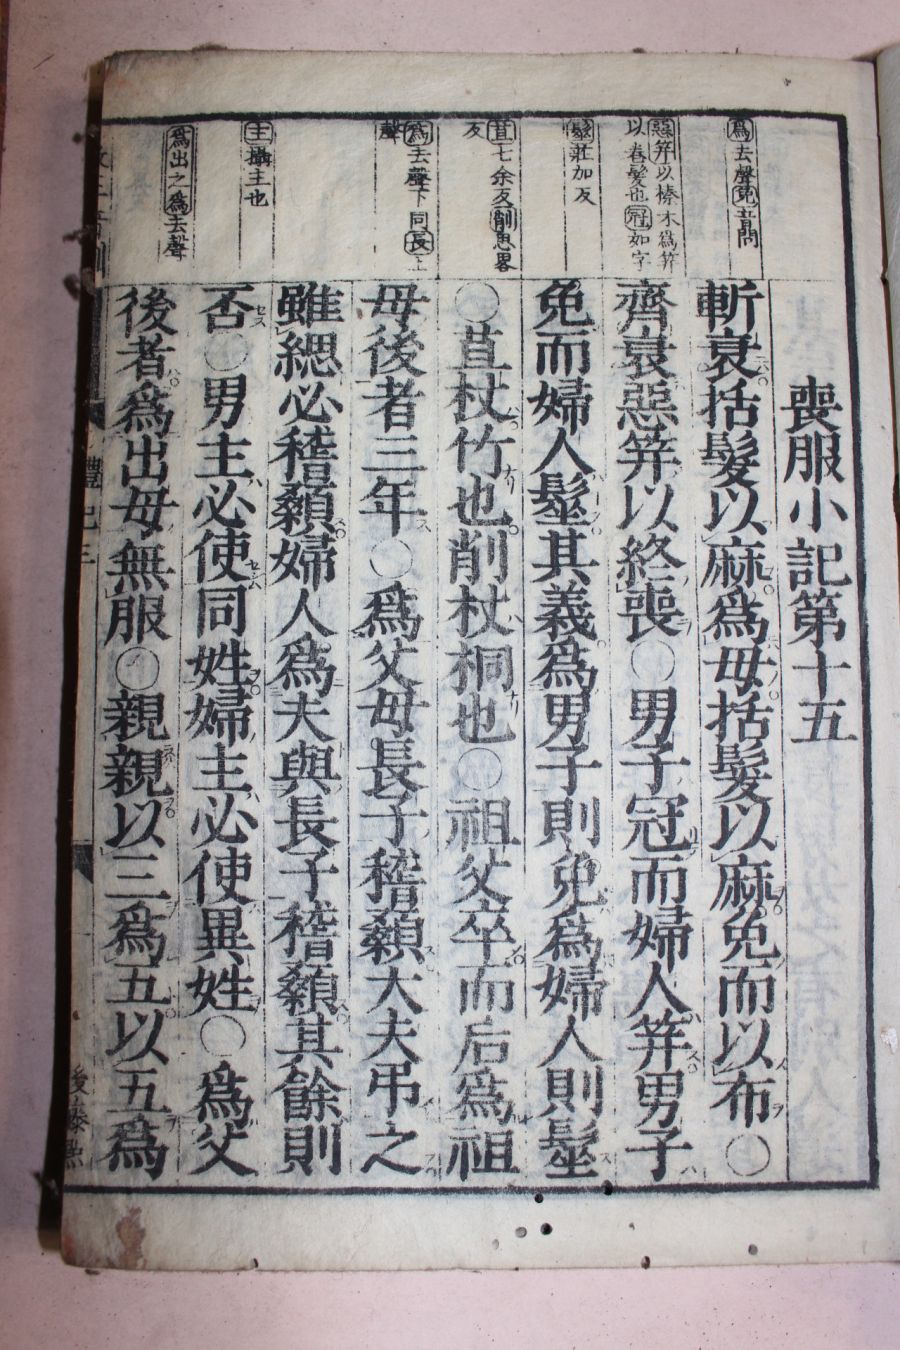 喪服小記第十五
斬衰括髮以麻爲母括髮以麻免而以布○
齊衰惡筓以終喪○男子冠而婦人筓男子
免而婦人髽其義爲男子則免爲婦人則髽
○苴杖竹也削杖桐也○祖父卒而后爲祖
母後者三年○爲父母長子稽顙大夫弔之
雖緦必稽顙婦人爲夫與長子稽顙其餘則
否○男主必使同姓婦主必使異姓○爲父
後者爲出母無服○親親以三爲五以五爲
爲去聲免音問
惡筓以榛木爲筓
以卷髮也冠如字
髽莊加反
苴七余反削思畧
反
爲去聲下同長上
聲
主攝主也
爲出之爲去聲
禮記三
後藤點